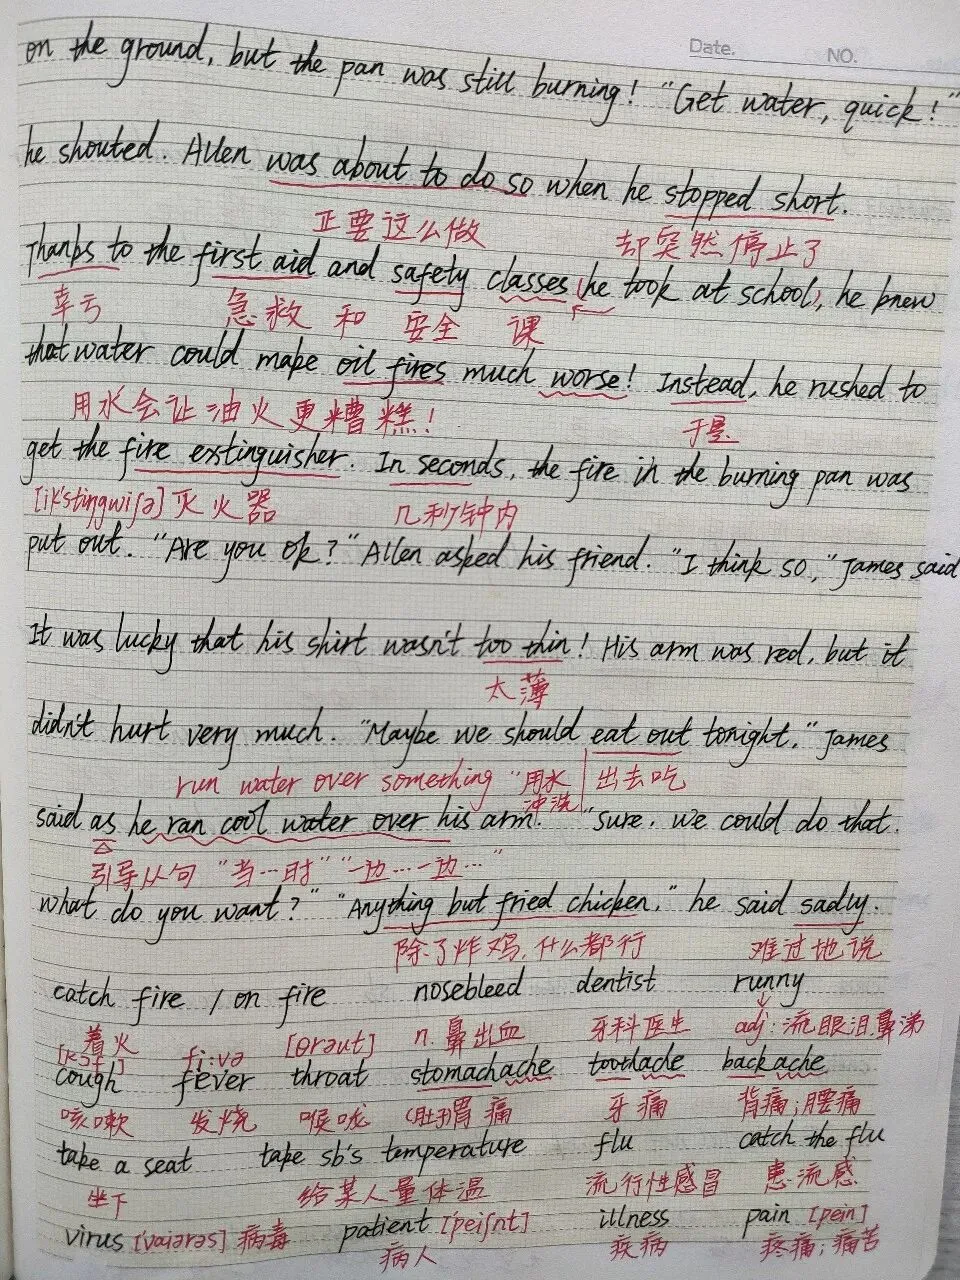 Date.
NO.
on the ground, but the pan was still burning! "Get water, quick!"
he shouted. Allen was about to do so when he stopped short.
正要这么做 却突然停止了
Thanks to the first aid and safety classes (he took at school), he knew
幸亏 急救 和 安全 课
that water could make oil fires much worse! Instead, he rushed to
用水会让油火更糟糕! 于是
get the fire extinguisher. In seconds, the fire in the burning pan was
[ik'stiŋgwiʃə] 灭火器 几秒钟内
put out. "Are you ok?" Allen asked his friend. "I think so," James said
It was lucky that his shirt wasn't too thin! His arm was red, but it
太薄
didn't hurt very much. "Maybe we should eat out tonight," James
run water over something "用水冲洗 出去吃
said as he ran cool water over his arm. "Sure, we could do that.
引导从句 "当…时" "一边…一边…"
what do you want?" "Anything but fried chicken," he said sadly.
除了炸鸡,什么都行 难过地说
catch fire / on fire nosebleed dentist runny
着火 [θrəut] n. 鼻出血 牙科医生 adj: 流眼泪.鼻涕
[kɔf] fi:və
cough fever throat stomachache toothache backache
咳嗽 发烧 喉咙 (肚子)胃痛 牙痛 背痛;腰痛
take a seat take sb's temperature flu catch the flu
坐下 给某人量体温 流行性感冒 患流感
virus [vaiərəs] 病毒 patient ['peiʃnt] illness pain [pein]
病人 疾病 疼痛;痛苦